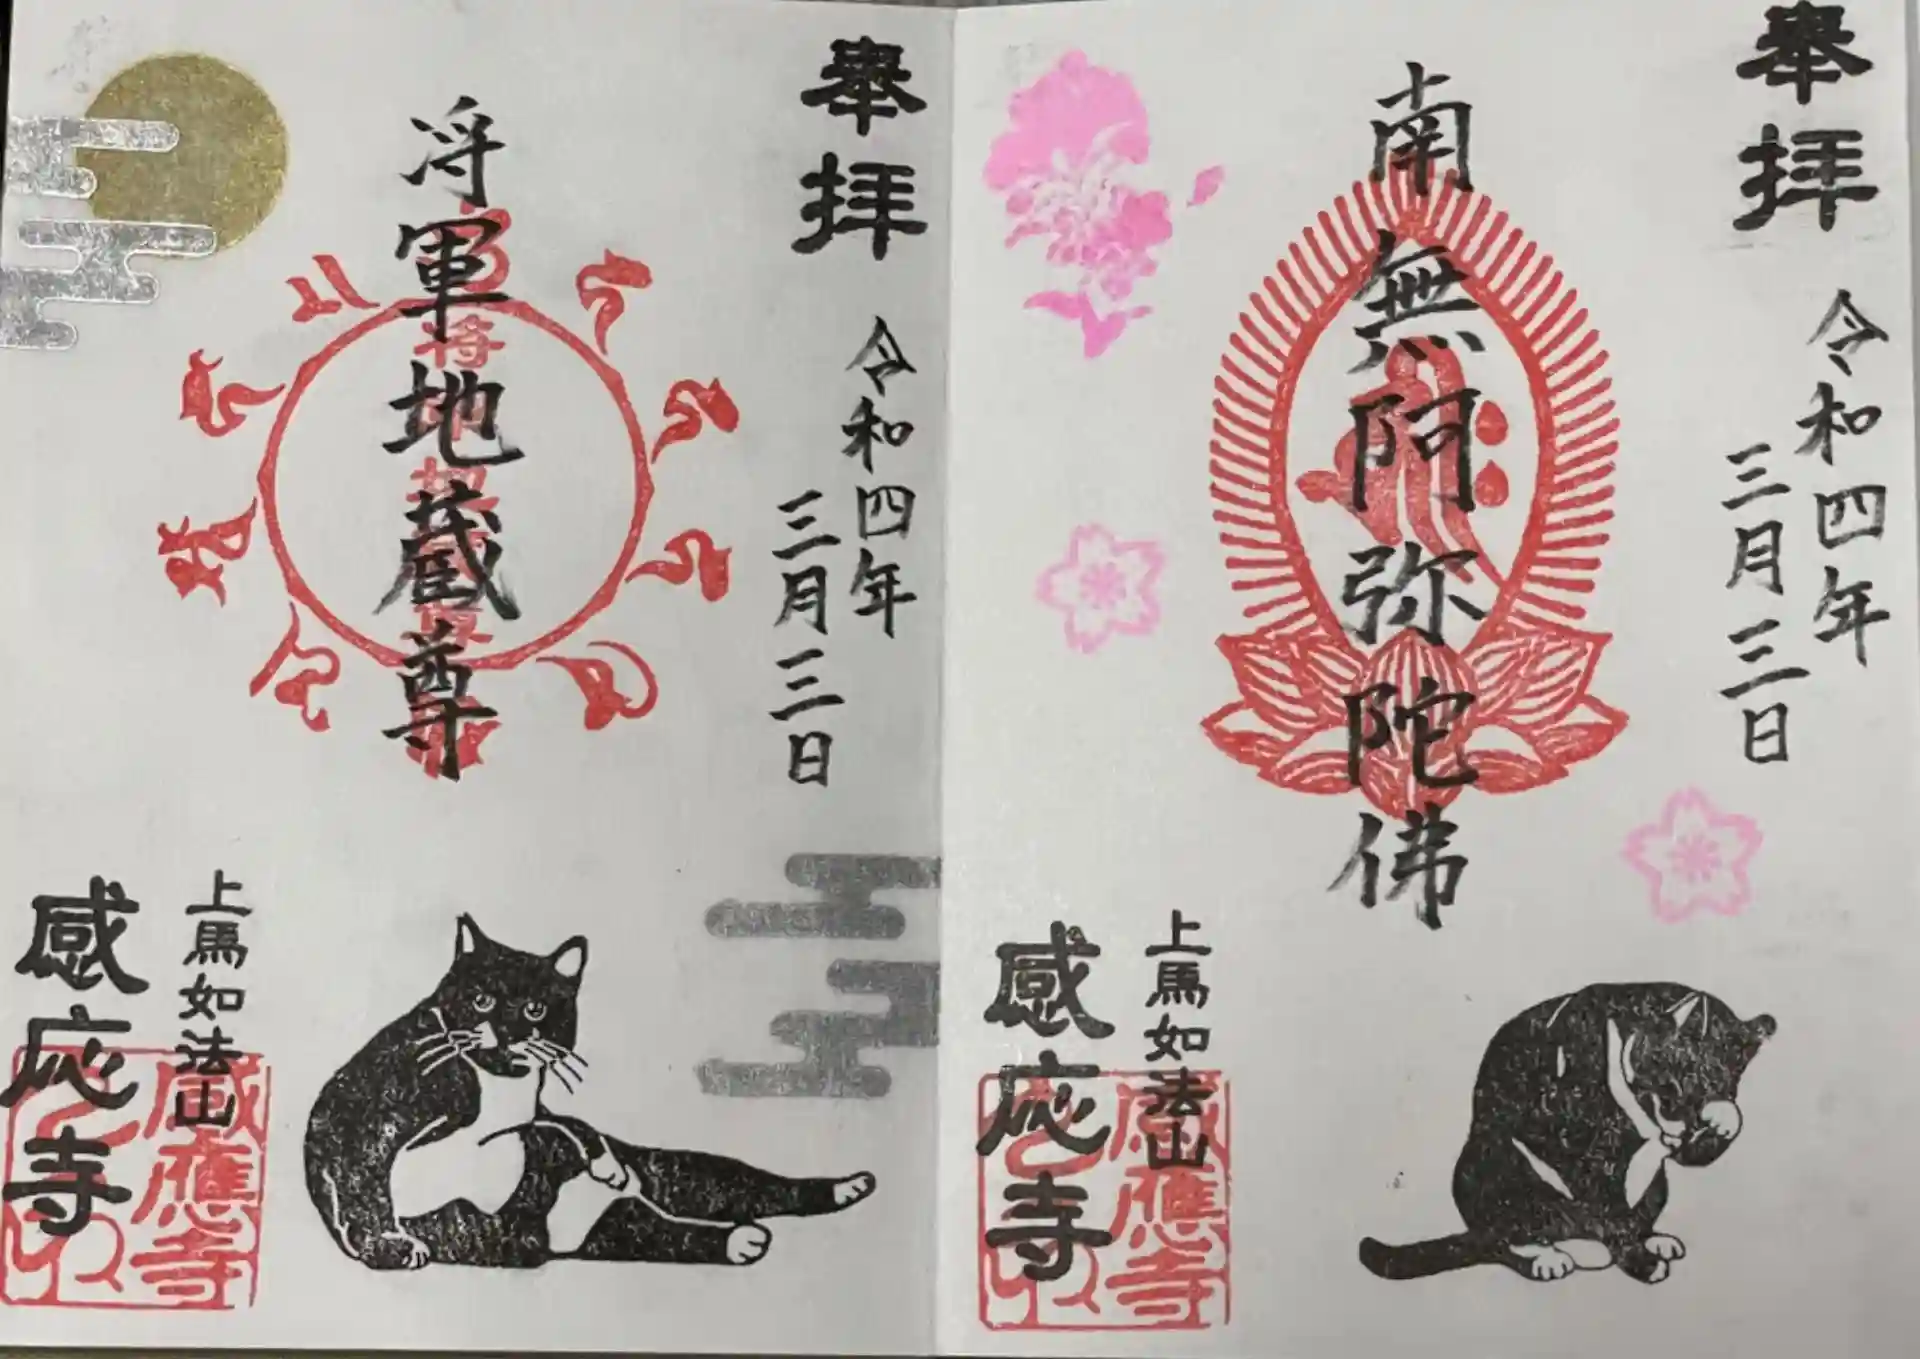 奉拝
令和四年
三月三日
南無阿弥陀佛
上馬如法山
感応寺
感應寺
奉拝
令和四年
三月三日
将軍地蔵尊
上馬如法山
感応寺
感應寺